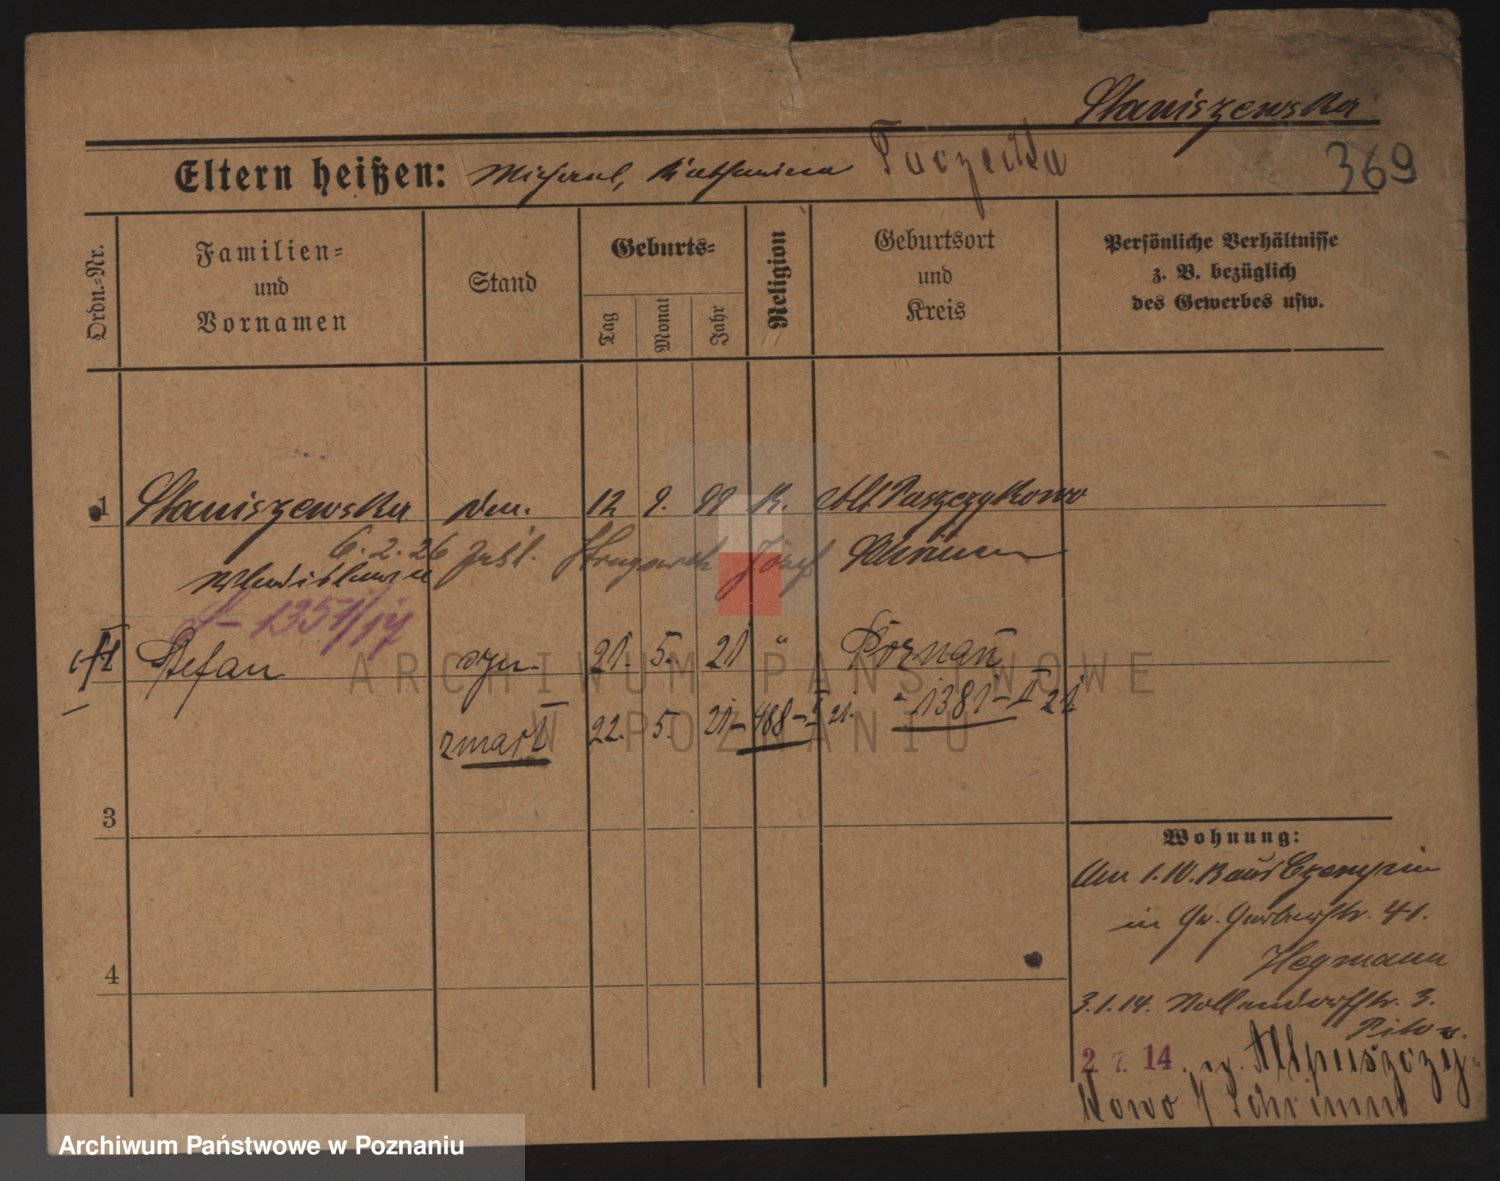 Staniszewska
Eltern heißen: Michael, Katharina
369
Ordn.-Nr.
Familien-
und
Vornamen
Stand
Geburts-
Tag
Monat
Jahr
Religion
Geburtsort
und
Kreis
Persönliche Verhältnisse
z. B. bezüglich
des Gewerbes usw.
1 Staniszewska 12 9. 99 K. Alt Puszczykowo
6. 2. 26 Józef Schrimm
1351/17
Stefan syn. 21. 5. 21 " Poznań
zmarł 22. 5. 21 - 488 - I 21. - 1381 - I 21
3
4
Wohnung:
Am 1.10.13 aus Czempin
in Gr. Gerberstr. 41.
Hegmann
3.1.14. Nollendorfstr. 3.
2. 7. 14. Altpuszczy-
kowo Schrimm
ARCHIWUM PAŃSTWOWE
W POZNANIU
Archiwum Państwowe w Poznaniu